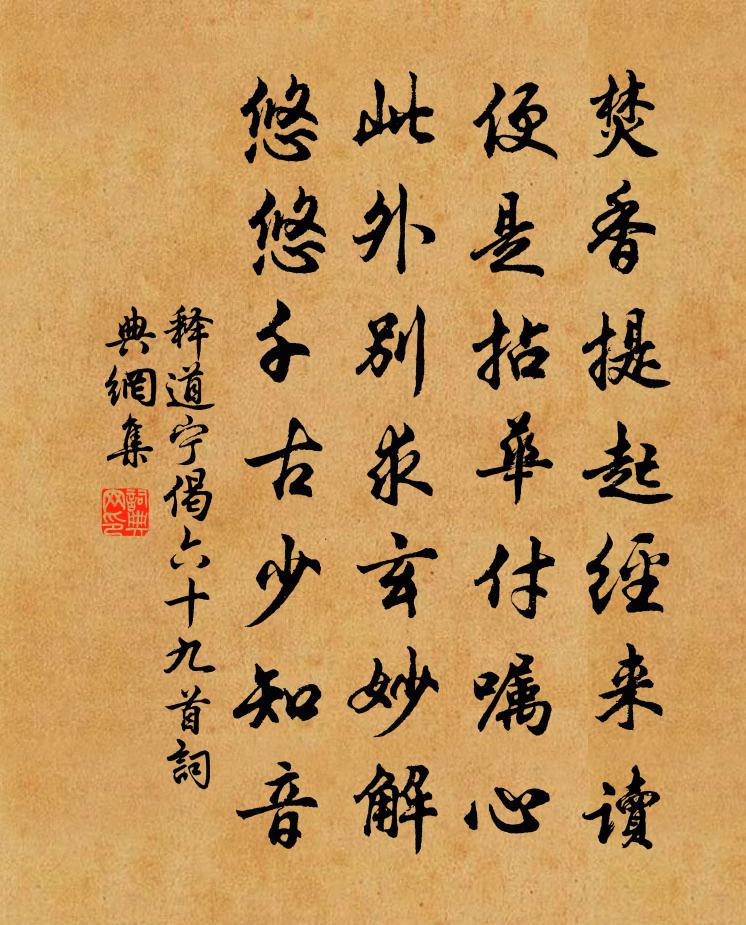 焚香提起經来讀
便是拈華付嘱心
此外別求玄妙解
悠悠千古少知音
释道宁偈六十九首詞
典網集
詞典
网印